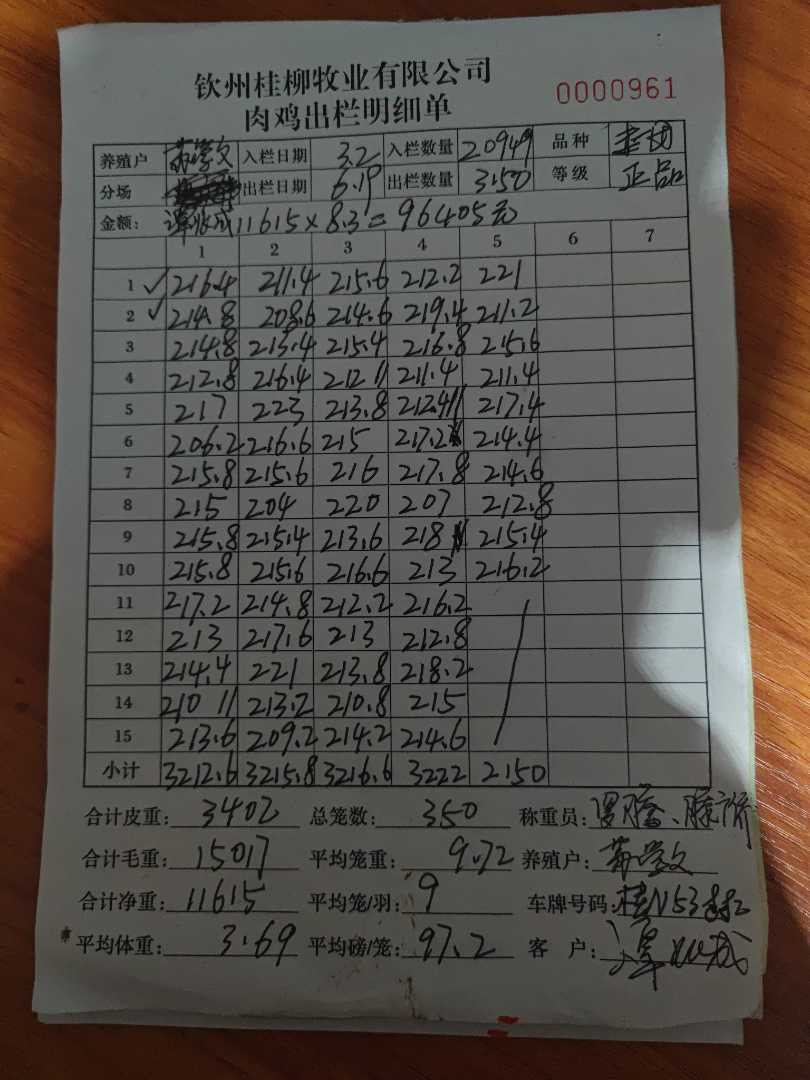 钦州桂柳牧业有限公司
肉鸡出栏明细单 0000961
养殖户 入栏日期 3.2 入栏数量 20949 品种
分场 出栏日期 6.19 出栏数量 3150 等级 正品
金额: 11615×8.3=96405元
1 2 3 4 5 6 7
1 ✓ 216.4 211.4 215.6 212.2 221
2 ✓ 214.8 208.6 214.6 219.4 211.2
3 214.8 213.4 215.4 216.8 215.6
4 212.8 216.4 212 11 211.4 211.4
5 217 223 213.8 212.4 217.4
6 206.2 216.6 215 217.2 214.4
7 215.8 215.6 216 217.8 214.6
8 215 204 220 207 212.8
9 215.8 215.4 213.6 218 215.4
10 215.8 215.6 216.6 213 216.2
11 217.2 214.8 212.2 216.2
12 213 217.6 213 212.8
13 214.4 221 213.8 218.2
14 210 11 213.2 210.8 215
15 213.6 209.2 214.2 214.6
小计 3212.6 3215.8 3216.6 3222 2150
合计皮重: 3402 总笼数: 350 称重员:
合计毛重: 15017 平均笼重: 9.72 养殖户:
合计净重: 11615 平均笼/羽: 9 车牌号码: 桂N53
*平均体重: 3.69 平均磅/笼: 97.2 客 户: